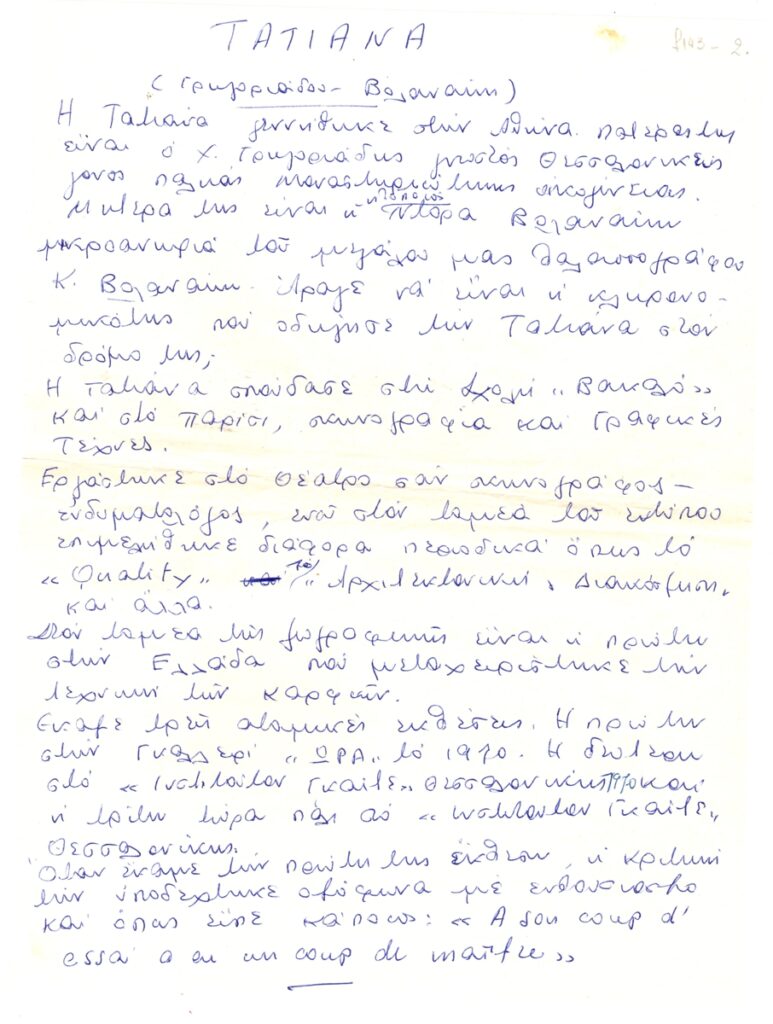 ΤΑΤΙΑΝΑ
2.
(Γρηγοριάδου - Βολανάκη)
Η Τατιάνα γεννήθηκε στην Αθήνα. Πατέρας της
είναι ο Χ. Γρηγοριάδης γνωστός Θεσσαλονικεύς
γόνος παλιάς Μοναστηριώτικης οικογένειας.
Μητέρα της είναι η ηθοποιός Ντόρα Βολανάκη
μικροανηψιά του μεγάλου μας θαλασσογράφου
Κ. Βολανάκη. Άραγε νά είναι η κληρονο-
μικότης που οδήγησε την Τατιάνα στον
δρόμο της;
Η Τατιάνα σπούδασε στη Σχολή "Βακαλό"
και στό Παρίσι, σκηνογραφία και Γραφικές
Τέχνες.
Εργάστηκε στό Θέατρο σαν σκηνογράφος -
ενδυματολόγος, ενώ στόν τομέα του εντύπου
επιμελήθηκε διάφορα περιοδικά όπως το
"Quality" το "Αρχιτεκτονική, Διακόσμηση"
και άλλα.
Στον τομέα της ζωγραφικής είναι η πρώτη
στην Ελλάδα που μεταχειρίστηκε την
τεχνική των καρφιών.
Εκαμε τρεις ατομικές εκθέσεις. Η πρώτη
στην Γκαλλερί "ΩΡΑ" τό 1970. Η δεύτερη
στό "Ινστιτούτον Γκαίτε" Θεσσαλονίκης 1970 και
η τρίτη τώρα πάλι στό "Ινστιτούτον Γκαίτε"
Θεσσαλονίκης.
Όταν έκαμε την πρώτη της έκθεση, η κριτική
την υποδέχτηκε ομόφωνα μέ ενθουσιασμό
και όπως είπε κάποιος: "A son coup d'
essai a eu un coup de maître"